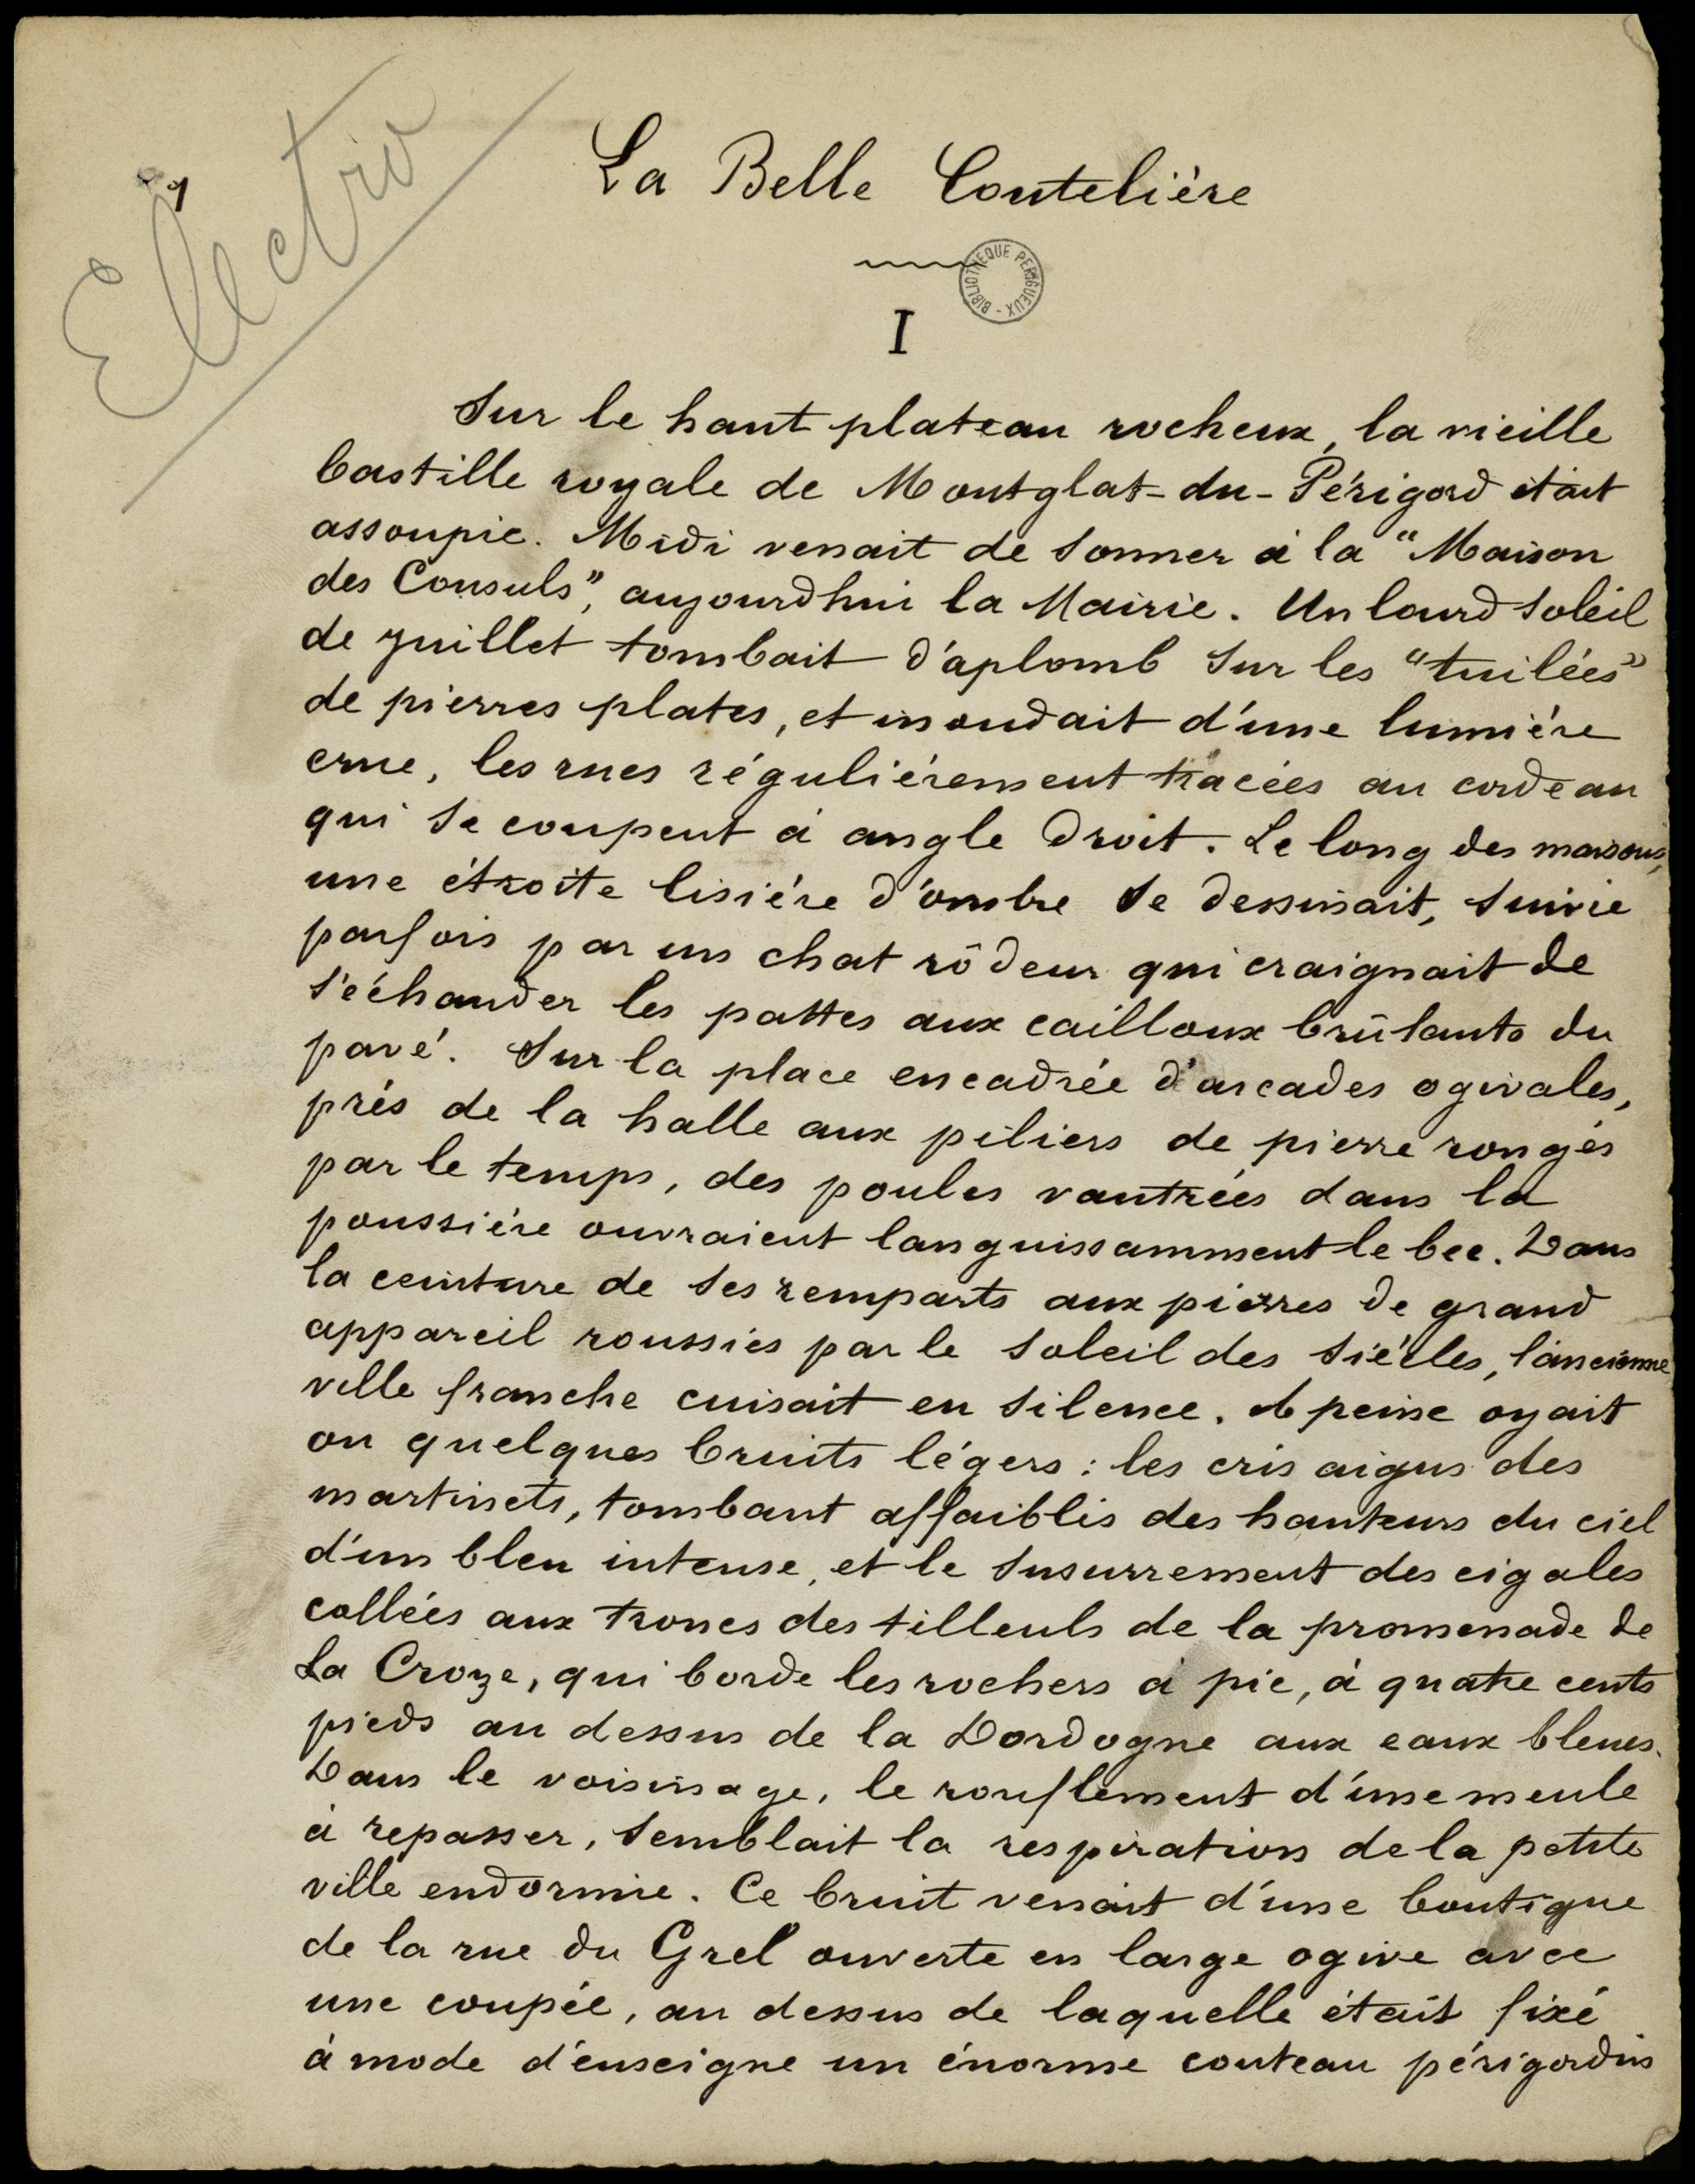 Electrio
La Belle Coutelière
BIBLIOTHEQUE PERIGUEUX
I
Sur le haut plateau rocheux, la vieille
bastille royale de Montglat-du-Périgord était
assoupie. Midi venait de sonner à la "Maison
des Consuls", aujourd'hui la Mairie. Un lourd soleil
de juillet tombait d'aplomb sur les "tuilées"
de pierres plates, et inondait d'une lumière
crue, les rues régulièrement tracées au cordeau
qui se coupent à angle droit. Le long des maisons,
une étroite lisière d'ombre se dessinait, suivie
parfois par un chat rôdeur qui craignait de
s'échauder les pattes aux cailloux brûlants du
pavé. Sur la place encadrée d'arcades ogivales,
près de la halle aux piliers de pierre rongés
par le temps, des poules vautrées dans la
poussière ouvraient languissamment le bec. Dans
la ceinture de ses remparts aux pierres de grand
appareil roussies par le soleil des siècles, l'ancienne
ville franche cuisait en silence. A peine oyait
on quelques bruits légers : les cris aigus des
martinets, tombant affaiblis des hauteurs du ciel
d'un bleu intense, et le susurrement des cigales
collées aux troncs des tilleuls de la promenade de
La Croze, qui borde les rochers à pic, à quatre cents
pieds au dessus de la Dordogne aux eaux bleues.
Dans le voisinage, le ronflement d'une meule
à repasser, semblait la respiration de la petite
ville endormie. Ce bruit venait d'une boutique
de la rue du Grel ouverte en large ogive avec
une coupée, au dessus de laquelle était fixé
à mode d'enseigne un énorme couteau périgordin